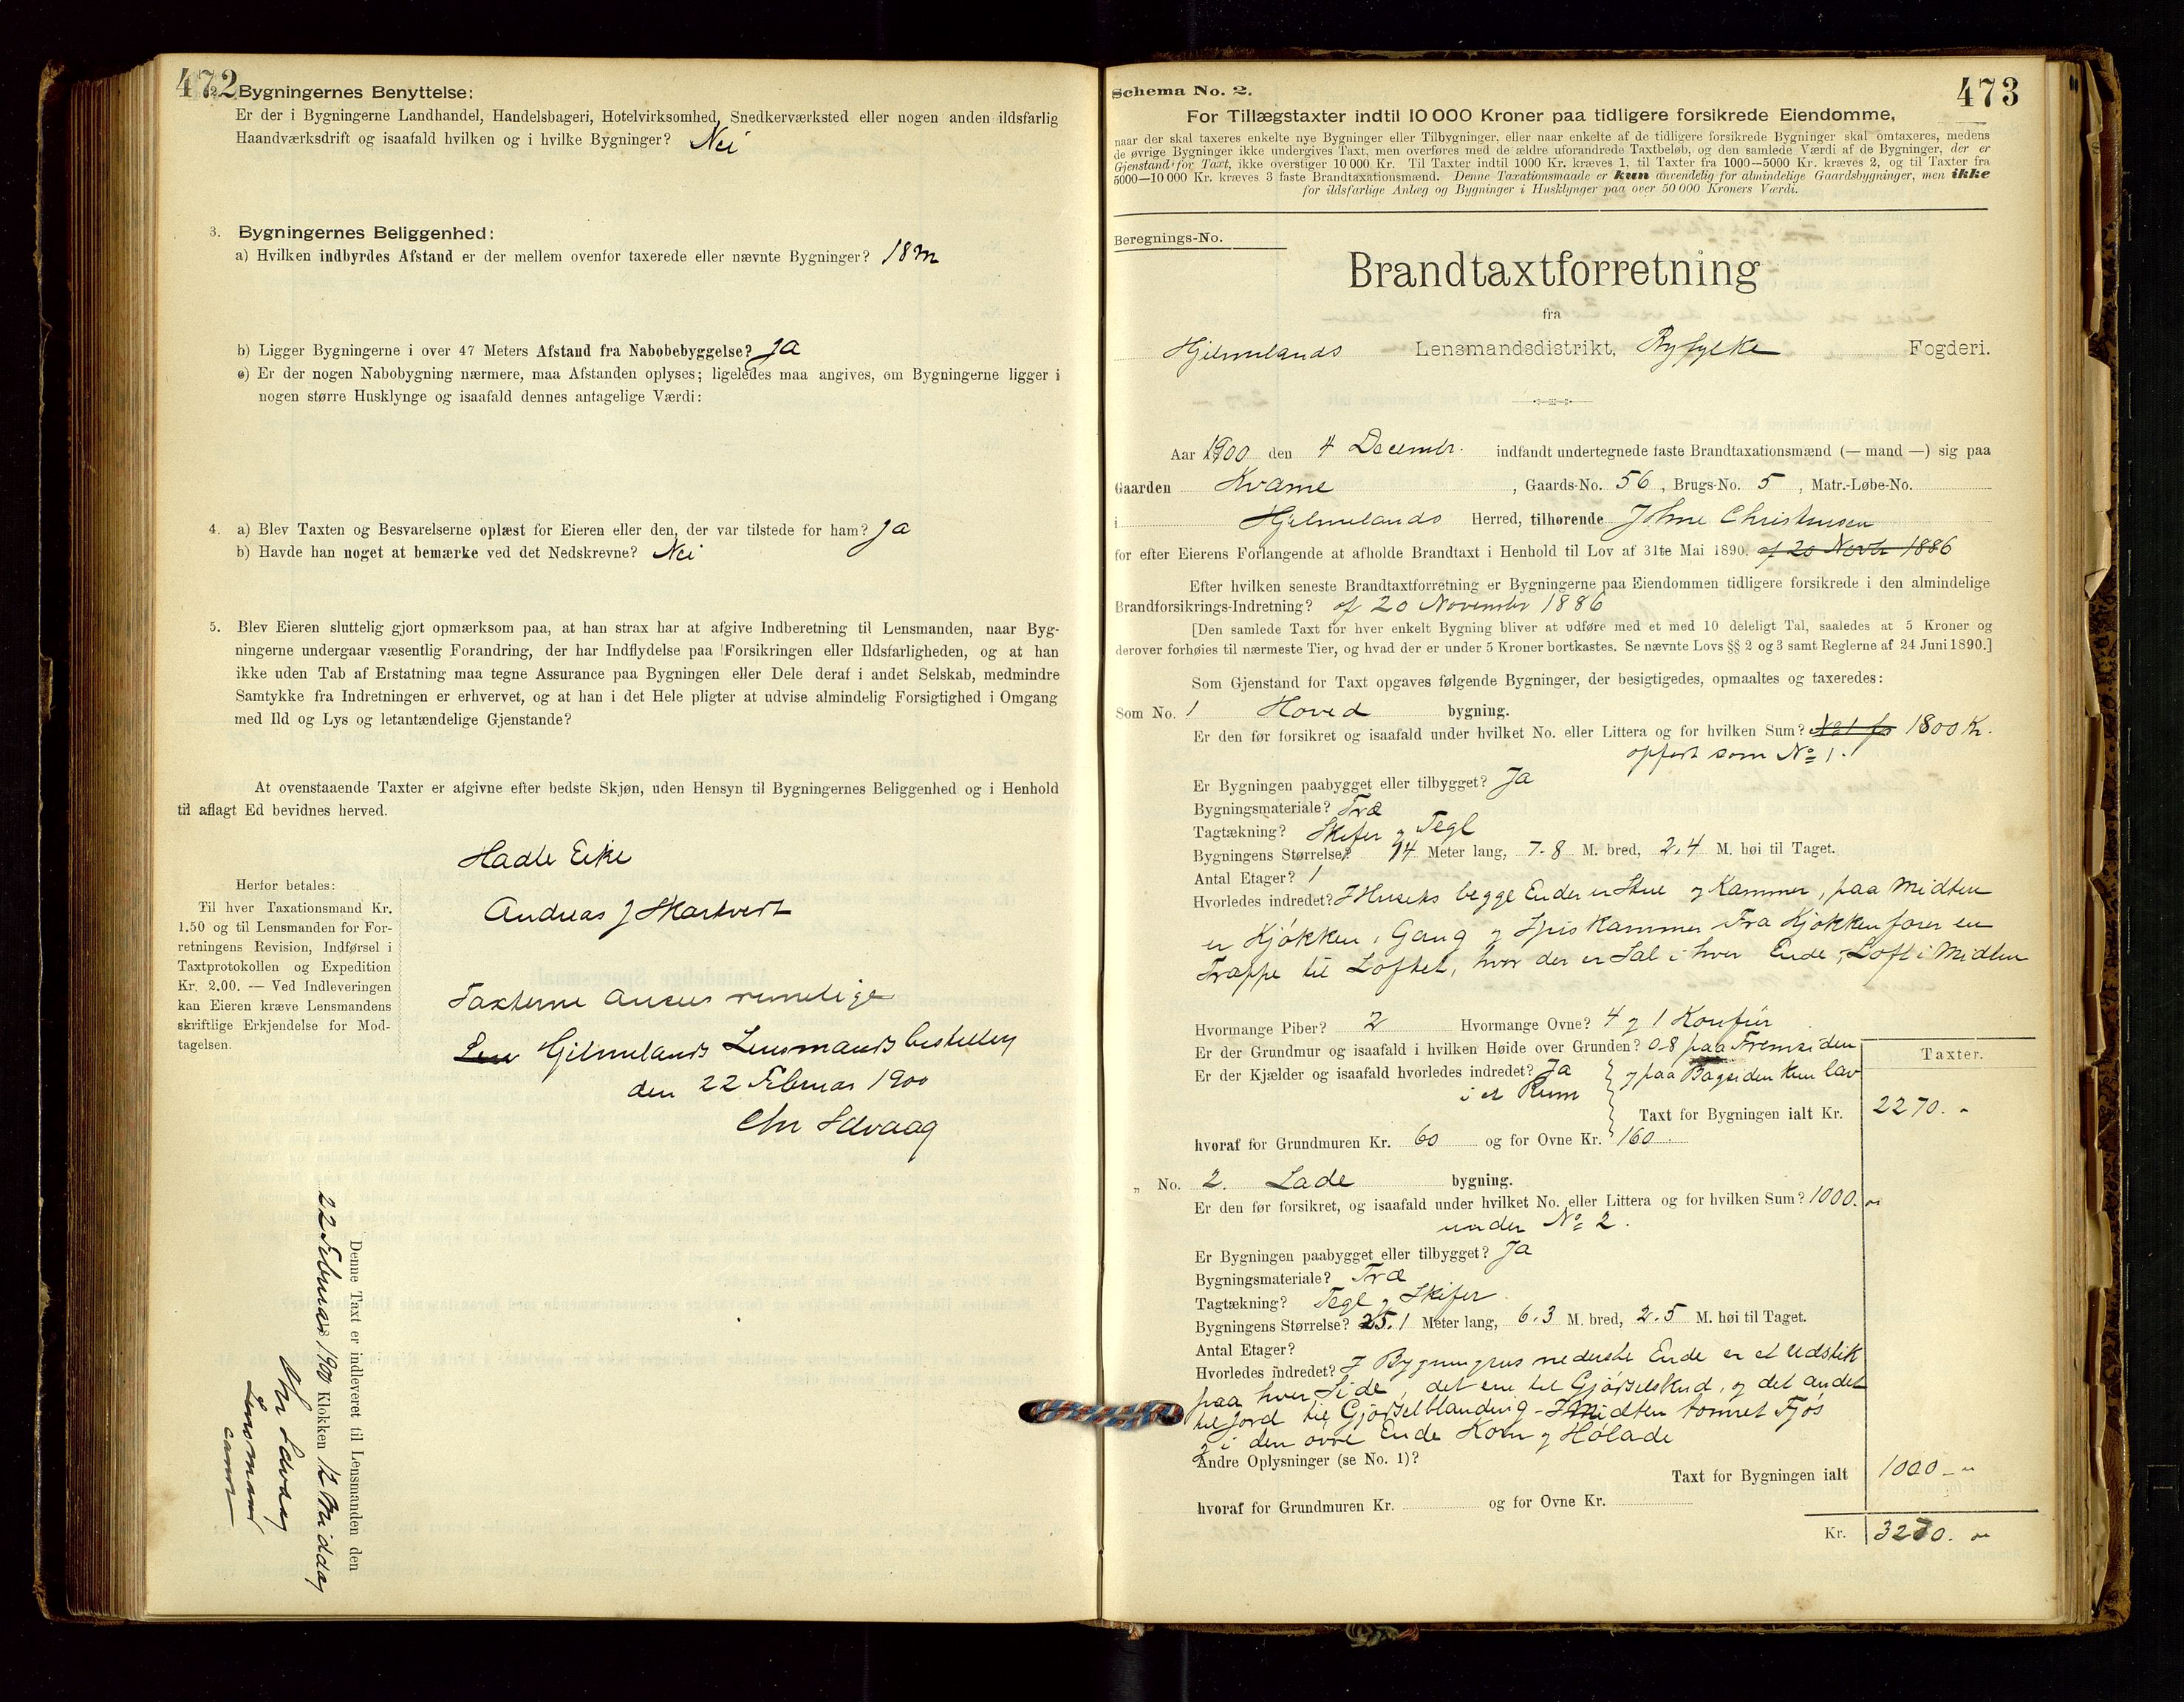 472
2. Bygningernes Benyttelse:
Er der i Bygningerne Landhandel, Handelsbageri, Hotelvirksomhed, Snedkerværksted eller nogen anden ildsfarlig
Haandværksdrift og isaafald hvilken og i hvilke Bygninger? Nei
3. Bygningernes Beliggenhed:
a) Hvilken indbyrdes Afstand er der mellem ovenfor taxerede eller nævnte Bygninger? 18 m
b) Ligger Bygningerne i over 47 Meters Afstand fra Nabobebyggelse? Ja
c) Er der nogen Nabobygning nærmere, maa Afstanden oplyses; ligeledes maa angives, om Bygningerne ligger i
nogen større Husklynge og isaafald dennes antagelige Værdi:
4. a) Blev Taxten og Besvarelserne oplæst for Eieren eller den, der var tilstede for ham? Ja
b) Havde han noget at bemærke ved det Nedskrevne? Nei
5. Blev Eieren sluttelig gjort opmærksom paa, at han strax har at afgive Indberetning til Lensmanden, naar Byg-
ningerne undergaar væsentlig Forandring, der har Indflydelse paa Forsikringen eller Ildsfarligheden, og at han
ikke uden Tab af Erstatning maa tegne Assurance paa Bygningen eller Dele deraf i andet Selskab, medmindre
Samtykke fra Indretningen er erhvervet, og at han i det Hele pligter at udvise almindelig Forsigtighed i Omgang
med Ild og Lys og letantændelige Gjenstande?
At ovenstaaende Taxter er afgivne efter bedste Skjøn, uden Hensyn til Bygningernes Beliggenhed og i Henhold
til aflagt Ed bevidnes herved.
Hadle Eike
Andreas J Skartveit
Herfor betales:
Til hver Taxationsmand Kr.
1.50 og til Lensmanden for For-
retningens Revision, Indførsel i
Taxtprotokollen og Expedition
Kr. 2.00. — Ved Indleveringen
kan Eieren kræve Lensmandens
skriftlige Erkjendelse for Mod-
tagelsen.
Taxterne ansees rimelige
Hjelmelands Lensmandsbestilling
den 22 Februar 1900
Chr Sdvaag
Denne Taxt er indleveret til Lensmanden den
22 Februar 1900 Klokken 12 Middag
Chr Sdvaag
Lensmand
473
Schema No. 2.
For Tillægstaxter indtil 10 000 Kroner paa tidligere forsikrede Eiendomme,
naar der skal taxeres enkelte nye Bygninger eller Tilbygninger, eller naar enkelte af de tidligere forsikrede Bygninger skal omtaxeres, medens
de øvrige Bygninger ikke undergives Taxt, men overføres med de ældre uforandrede Taxtbeløb, og den samlede Værdi af de Bygninger, der er
Gjenstand for Taxt, ikke overstiger 10 000 Kr. Til Taxter indtil 1000 Kr. kræves 1, til Taxter fra 1000—5000 Kr. kræves 2, og til Taxter fra
5000—10 000 Kr. kræves 3 faste Brandtaxationsmænd. Denne Taxationsmaade er kun anvendelig for almindelige Gaardsbygninger, men ikke
for ildsfarlige Anlæg og Bygninger i Husklynger paa over 50 000 Kroners Værdi.
Beregnings-No.
Brandtaxtforretning
fra
Hjelmelands Lensmandsdistrikt, Ryfylke Fogderi.
Aar 1900 den 4 Decembr. indfandt undertegnede faste Brandtaxationsmænd (— mand —) sig paa
Gaarden Kvame, Gaards-No. 56, Brugs-No. 5, Matr.-Løbe-No.
i Hjelmelands Herred, tilhørende Johne Christensen
for efter Eierens Forlangende at afholde Brandtaxt i Henhold til Lov af 31te Mai 1890. af 20 Novbr 1886
Efter hvilken seneste Brandtaxtforretning er Bygningerne paa Eiendommen tidligere forsikrede i den almindelige
Brandforsikrings-Indretning? af 20 November 1886
[Den samlede Taxt for hver enkelt Bygning bliver at udføre med et med 10 deleligt Tal, saaledes at 5 Kroner og
derover forhøies til nærmeste Tier, og hvad der er under 5 Kroner bortkastes. Se nævnte Lovs §§ 2 og 3 samt Reglerne af 24 Juni 1890.]
Som Gjenstand for Taxt opgaves følgende Bygninger, der besigtigedes, opmaaltes og taxeredes:
Som No. 1 Hoved bygning.
Er den før forsikret og isaafald under hvilket No. eller Littera og for hvilken Sum? No 1 for 1800 Kr.
opført som No 1.
Er Bygningen paabygget eller tilbygget? Ja
Bygningsmateriale? Træ
Tagtækning? Skifer og Tegl
Bygningens Størrelse? 14 Meter lang, 7.8 M. bred, 2.4 M. høi til Taget.
Antal Etager? 1
Hvorledes indredet? I Husets begge Ender er Stue og Kammer, paa Midten
er Kjøkken, Gang og Spiskammer Fra Kjøkken fører en
Trappe til Loftet, hvor der er Sal i hver Ende, Loft i Midten
Hvormange Piber? 2 Hvormange Ovne? 4 og 1 Komfür
Er der Grundmur og isaafald i hvilken Høide over Grunden? 0.8 paa Fremsiden
Er der Kjælder og isaafald hvorledes indredet? Ja og paa Bagsiden kun lav
i et Rum
Taxter.
Taxt for Bygningen ialt Kr. 2270. -
hvoraf for Grundmuren Kr. 60 og for Ovne Kr. 160
„ No. 2. Lade bygning.
Er den før forsikret, og isaafald under hvilket No. eller Littera og for hvilken Sum? 1000.
under No 2.
Er Bygningen paabygget eller tilbygget? Ja
Bygningsmateriale? Træ
Tagtækning? Tegl og Skifer
Bygningens Størrelse? 25.1 Meter lang, 6.3 M. bred, 2.5 M. høi til Taget.
Antal Etager?
Hvorledes indredet? I Bygningens nederste Ende er et Udstik
paa hver Side, det ene til Gjødselskud, og det andet
til Jord til Gjødselblanding - I Midten tømret Fjøs
og i den øvre Ende Korn og Hølade
Andre Oplysninger (se No. 1)?
Taxt for Bygningen ialt 1000 -
hvoraf for Grundmuren Kr. og for Ovne Kr.
Kr. 3270.